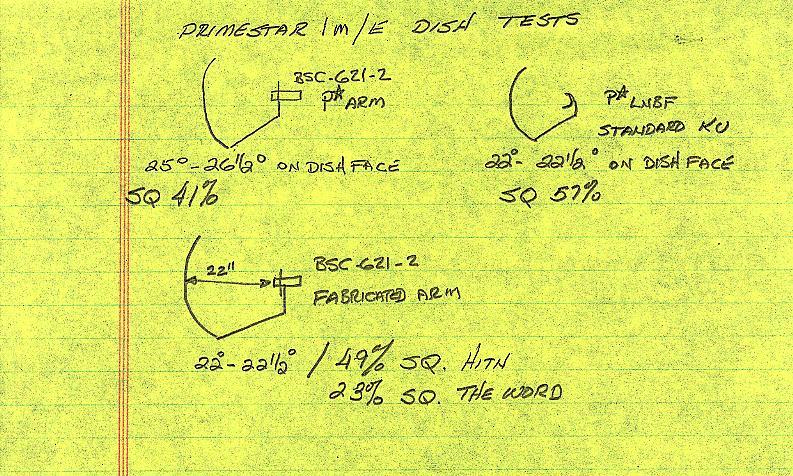 PRIMESTAR 1m/E DISH TESTS
BSC-621-2
P☆ ARM
25° - 26 1/2° ON DISH FACE
SQ 41%
P☆ LNBF
STANDARD KU
22° - 22 1/2° ON DISH FACE
SQ 57%
22"
BSC-621-2
FABRICATED ARM
22° - 22 1/2° / 49% SQ. HITN
23% SQ. THE WORD